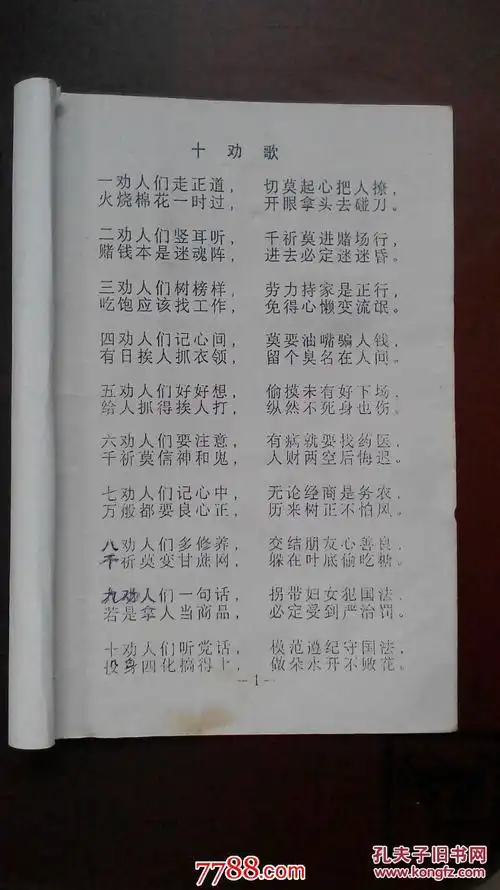 十劝歌
一劝人们走正道，　切莫起心把人撩，
火烧棉花一时过，　开眼拿头去碰刀。
二劝人们竖耳听，　千祈莫进赌场行，
赌钱本是迷魂阵，　进去必定迷迷昏。
三劝人们树榜样，　劳力持家是正行，
吃饱应该找工作，　免得心懒变流氓。
四劝人们记心间，　莫要油嘴骗人钱，
有日挨人抓衣领，　留个臭名在人间。
五劝人们好好想，　偷摸未有好下场，
给人抓得挨人打，　纵然不死身也伤。
六劝人们要注意，　有病就要找药医，
千祈莫信神和鬼，　人财两空后悔迟。
七劝人们记心中，　无论经商是务农，
万般都要良心正，　历来树正不怕风。
八劝人们多修养，　交结朋友心善良，
千祈莫变甘蔗网，　躲在叶底偷吃糖。
九劝人们一句话，　拐带妇女犯国法，
若是拿人当商品，　必定受到严治罚。
十劝人们听党话，　模范遵纪守国法，
投身四化搞得上，　做朵永开不败花。
—1—
7788.com
孔夫子旧书网
www.kongfz.com